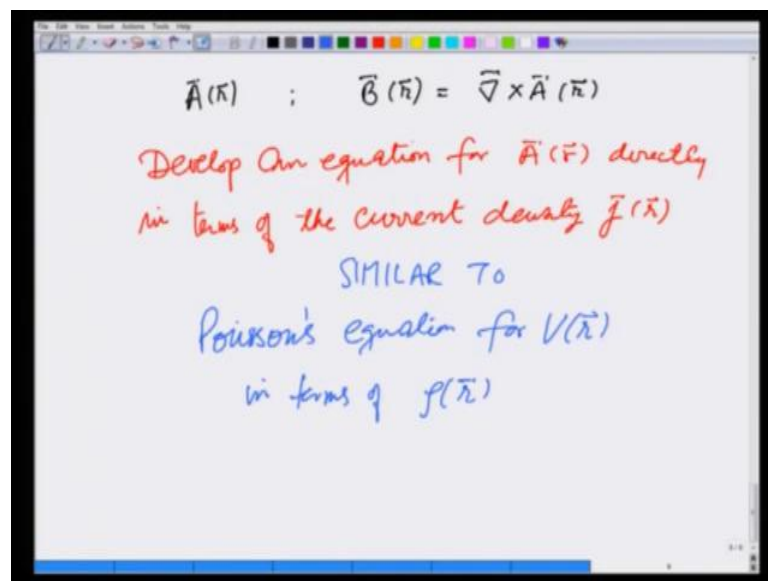 File Edit View Insert Actions Tools Help
A⃗(r⃗) ; B⃗(r⃗) = ∇⃗ × A⃗(r⃗)
Develop an equation for A⃗(r⃗) directly
in terms of the current density j⃗(r⃗)
SIMILAR TO
Poisson's equation for V(r⃗)
in terms of ρ(r⃗)